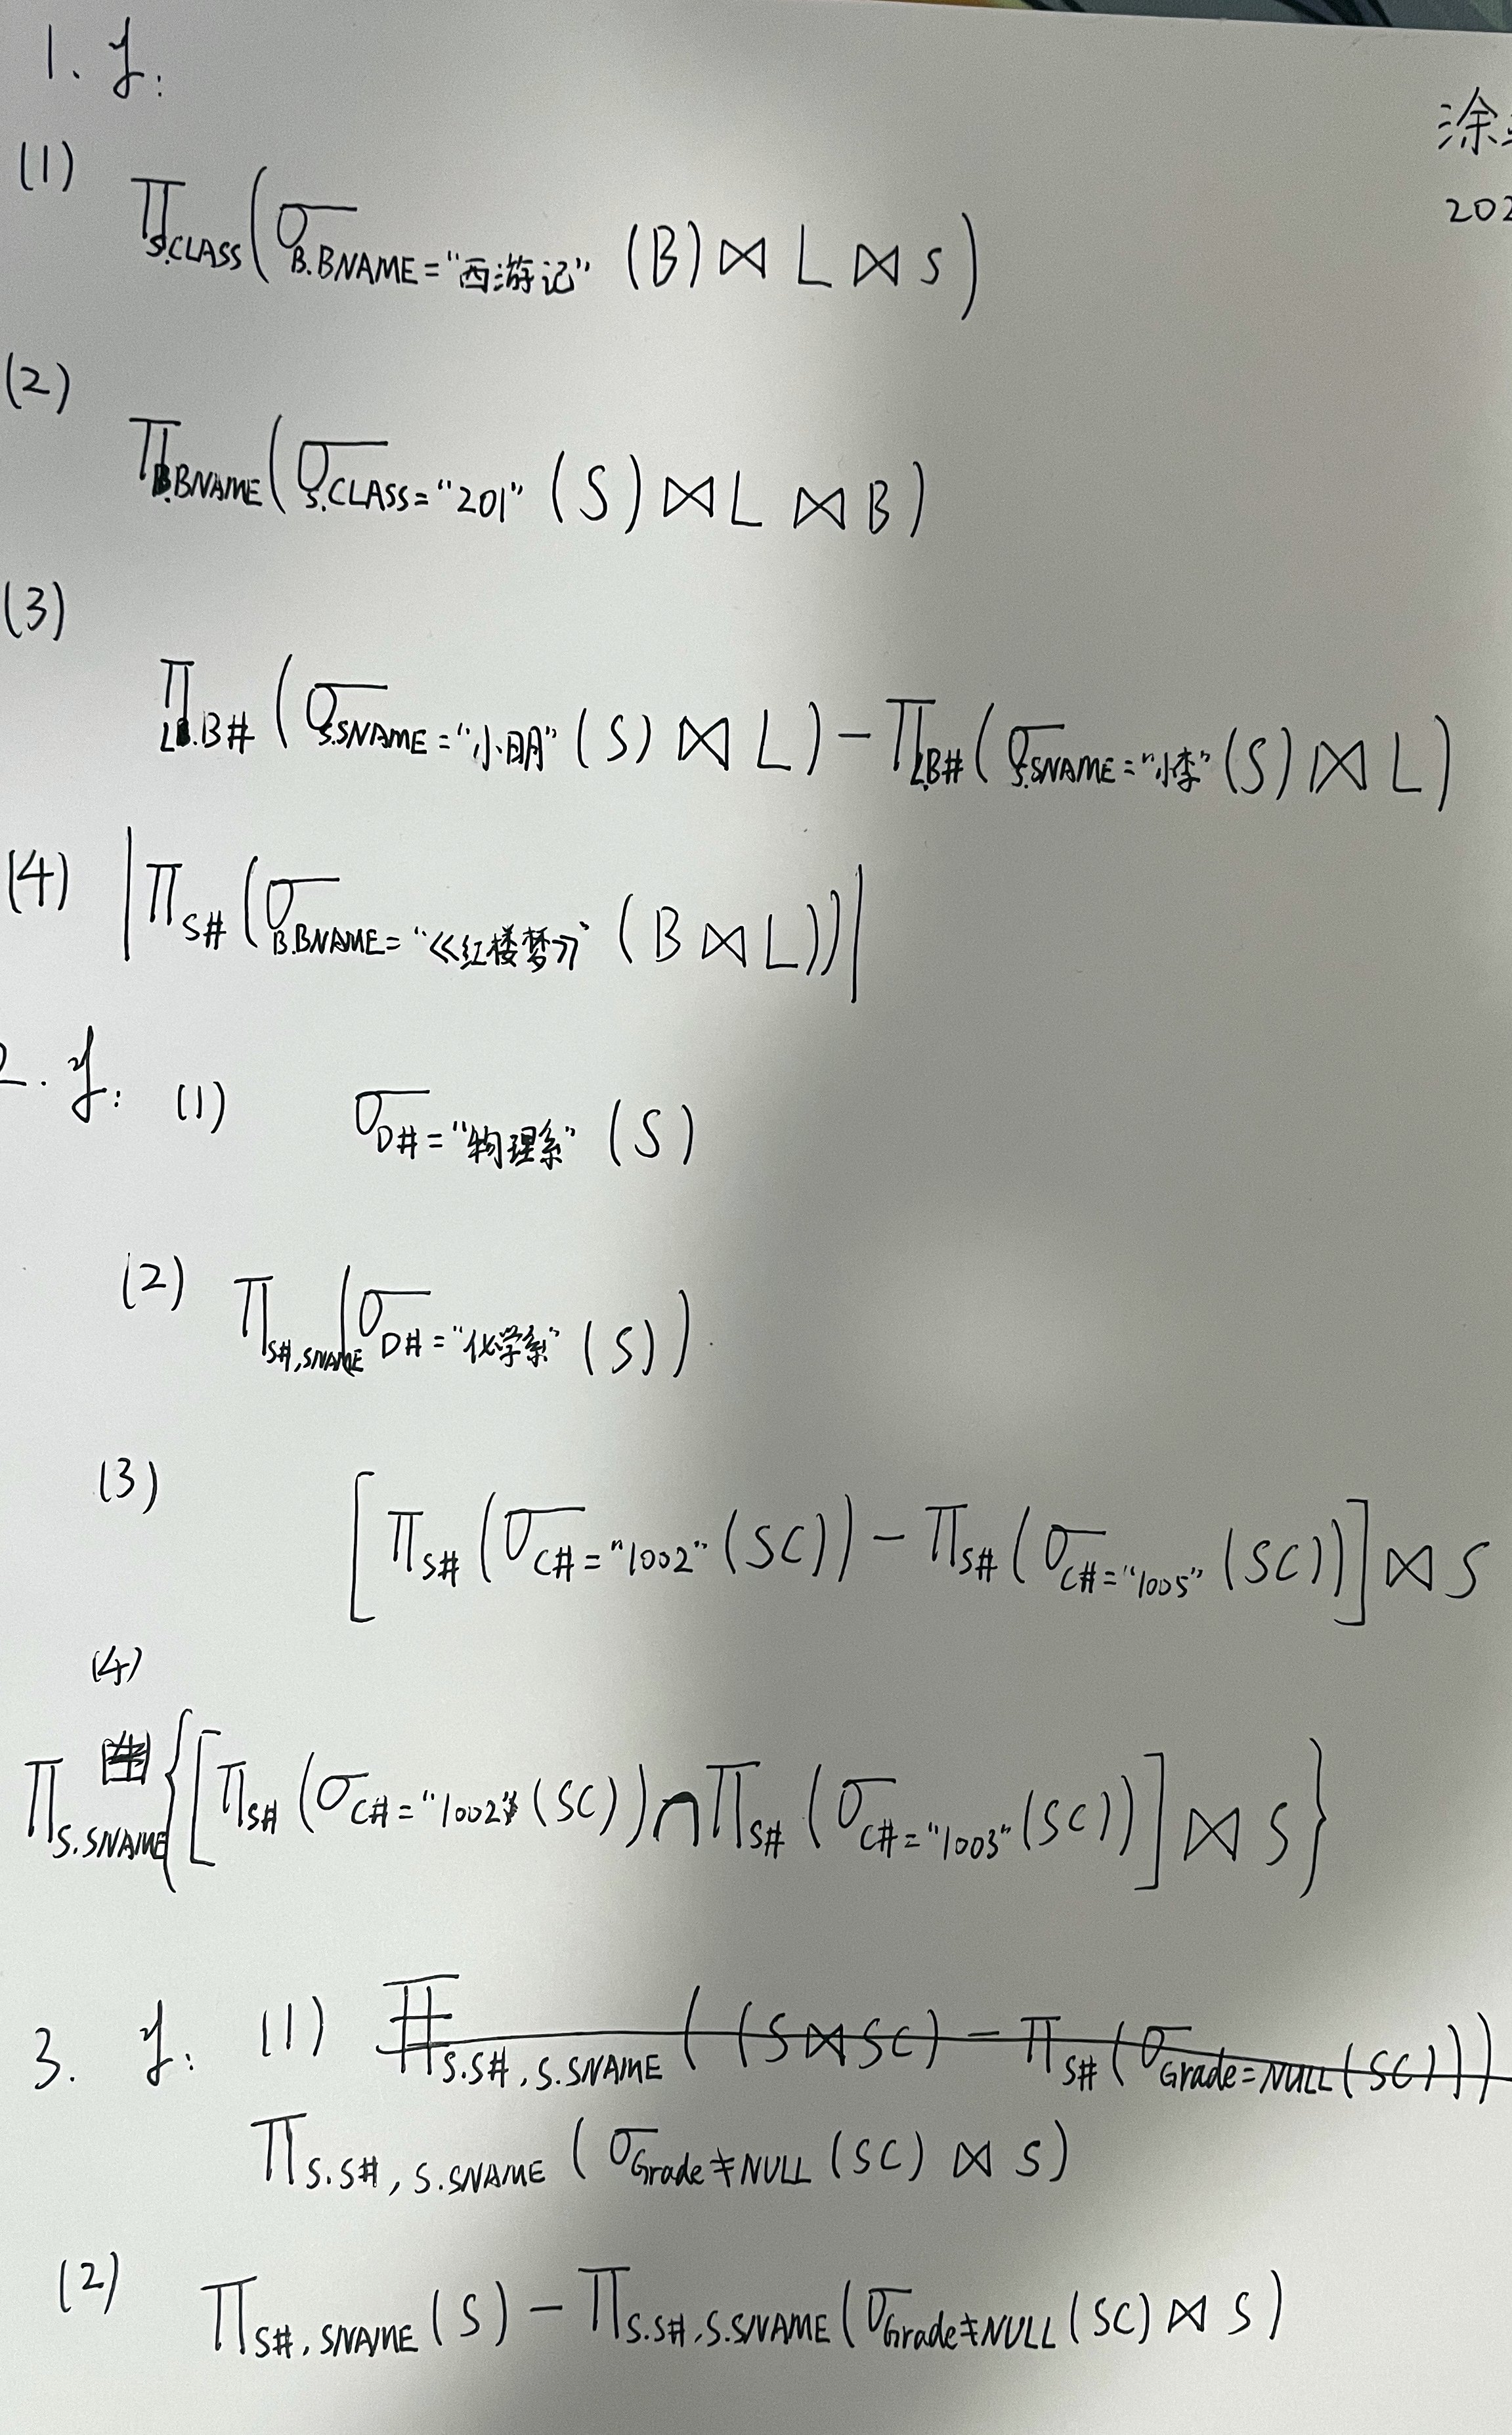 1. 解:
涂
202
(1) Π_{S.CLASS}(σ_{B.BNAME="西游记"}(B)⋈L⋈S)
(2) Π_{B.BNAME}(σ_{S.CLASS="201"}(S)⋈L⋈B)
(3) Π_{L.B#}(σ_{S.SNAME="小明"}(S)⋈L)-Π_{L.B#}(σ_{S.SNAME="小李"}(S)⋈L)
(4) |Π_{S#}(σ_{B.BNAME="《红楼梦》"}(B⋈L))|
2. 解: (1) σ_{D#="物理系"}(S)
(2) Π_{S#,SNAME}(σ_{D#="化学系"}(S))
(3) [Π_{S#}(σ_{C#="1002"}(SC))-Π_{S#}(σ_{C#="1005"}(SC))]⋈S
(4)
Π_{S.SNAME}{[Π_{S#}(σ_{C#="1002"}(SC))∩Π_{S#}(σ_{C#="1003"}(SC))]⋈S}
3. 解: (1) Π_{S.S#,S.SNAME}((S⋈SC)-Π_{S#}(σ_{Grade=NULL}(SC)))
Π_{S.S#,S.SNAME}(σ_{Grade≠NULL}(SC)⋈S)
(2) Π_{S#,SNAME}(S)-Π_{S.S#,S.SNAME}(σ_{Grade≠NULL}(SC)⋈S)